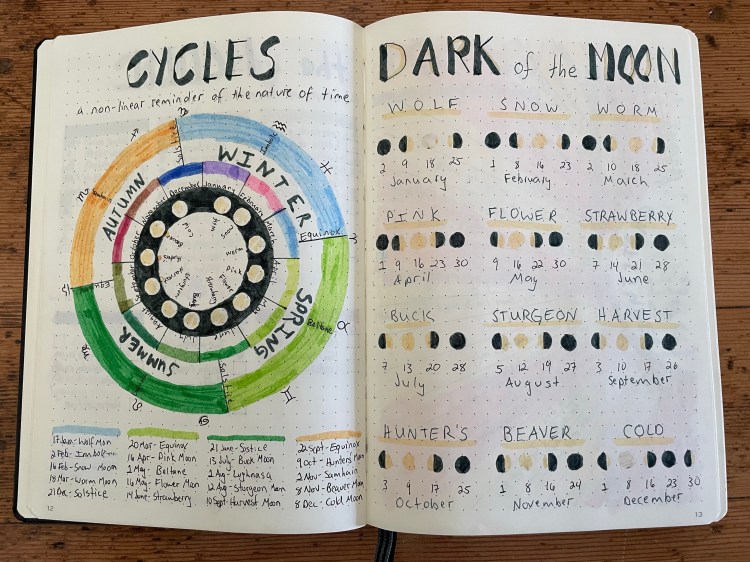 CYCLES
a non-linear reminder of the nature of time
WINTER
SPRING
SUMMER
AUTUMN
Solstice
Imbolc
Equinox
Beltane
Solstice
Equinox
Samhain
December
January
February
March
April
June
August
September
Wolf
Snow
Worm
Pink
Flower
Strawberry
Buck
Sturgeon
Harvest
Hunters
Beaver
Cold
17 Jan - Wolf Moon
2 Feb - Imbolc
16 Feb - Snow Moon
18 Mar - Worm Moon
21 Dec - Solstice
20 Mar - Equinox
16 Apr - Pink Moon
1 May - Beltane
16 May - Flower Moon
14 June - Strawberry
21 June - Sostice
13 July - Buck Moon
1 Aug - Lughnasa
12 Aug - Sturgeon Moon
10 Sept - Harvest Moon
22 Sept - Equinox
9 Oct - Hunters Moon
1 Nov - Samhain
8 Nov - Beaver Moon
8 Dec - Cold Moon
12
DARK of the MOON
WOLF SNOW WORM
2 9 18 25 1 8 16 23 2 10 18 25
January February March
PINK FLOWER STRAWBERRY
1 9 16 23 30 9 16 22 30 7 14 21 28
April May June
BUCK STURGEON HARVEST
7 13 20 28 5 12 19 27 3 10 17 26
July August September
HUNTER'S BEAVER COLD
3 9 17 25 1 8 16 24 1 8 16 23 30
October November December
13